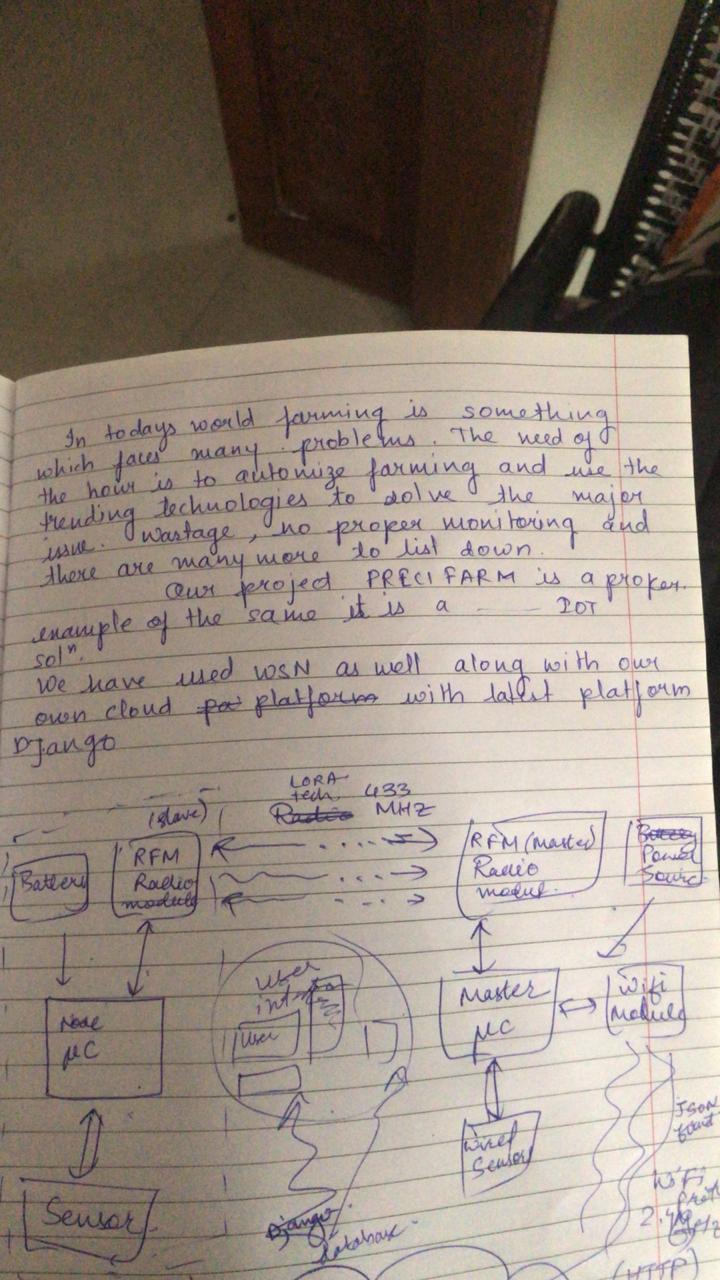 In todays world farming is something
which faces many problems. The need of
the hour is to automize farming and use the
trending technologies to solve the major
issue. Wastage, no proper monitoring and
there are many more to list down.
Our project PRECIFARM is a proper
example of the same it is a ——— IOT
solⁿ.
We have used WSN as well along with our
own cloud platform with latest platform
Django
LORA
tech. 433
Radio MHZ
(slave)
Battery
RFM
Radio
module
RFM (Master)
Radio
modul.
Battery
Power
Source
Node
μC
User
User
Master
μC
Wifi
Module
Sensor
Wired
Sensor
Django
database
JSON
WiFi
2.4
(HTTP)